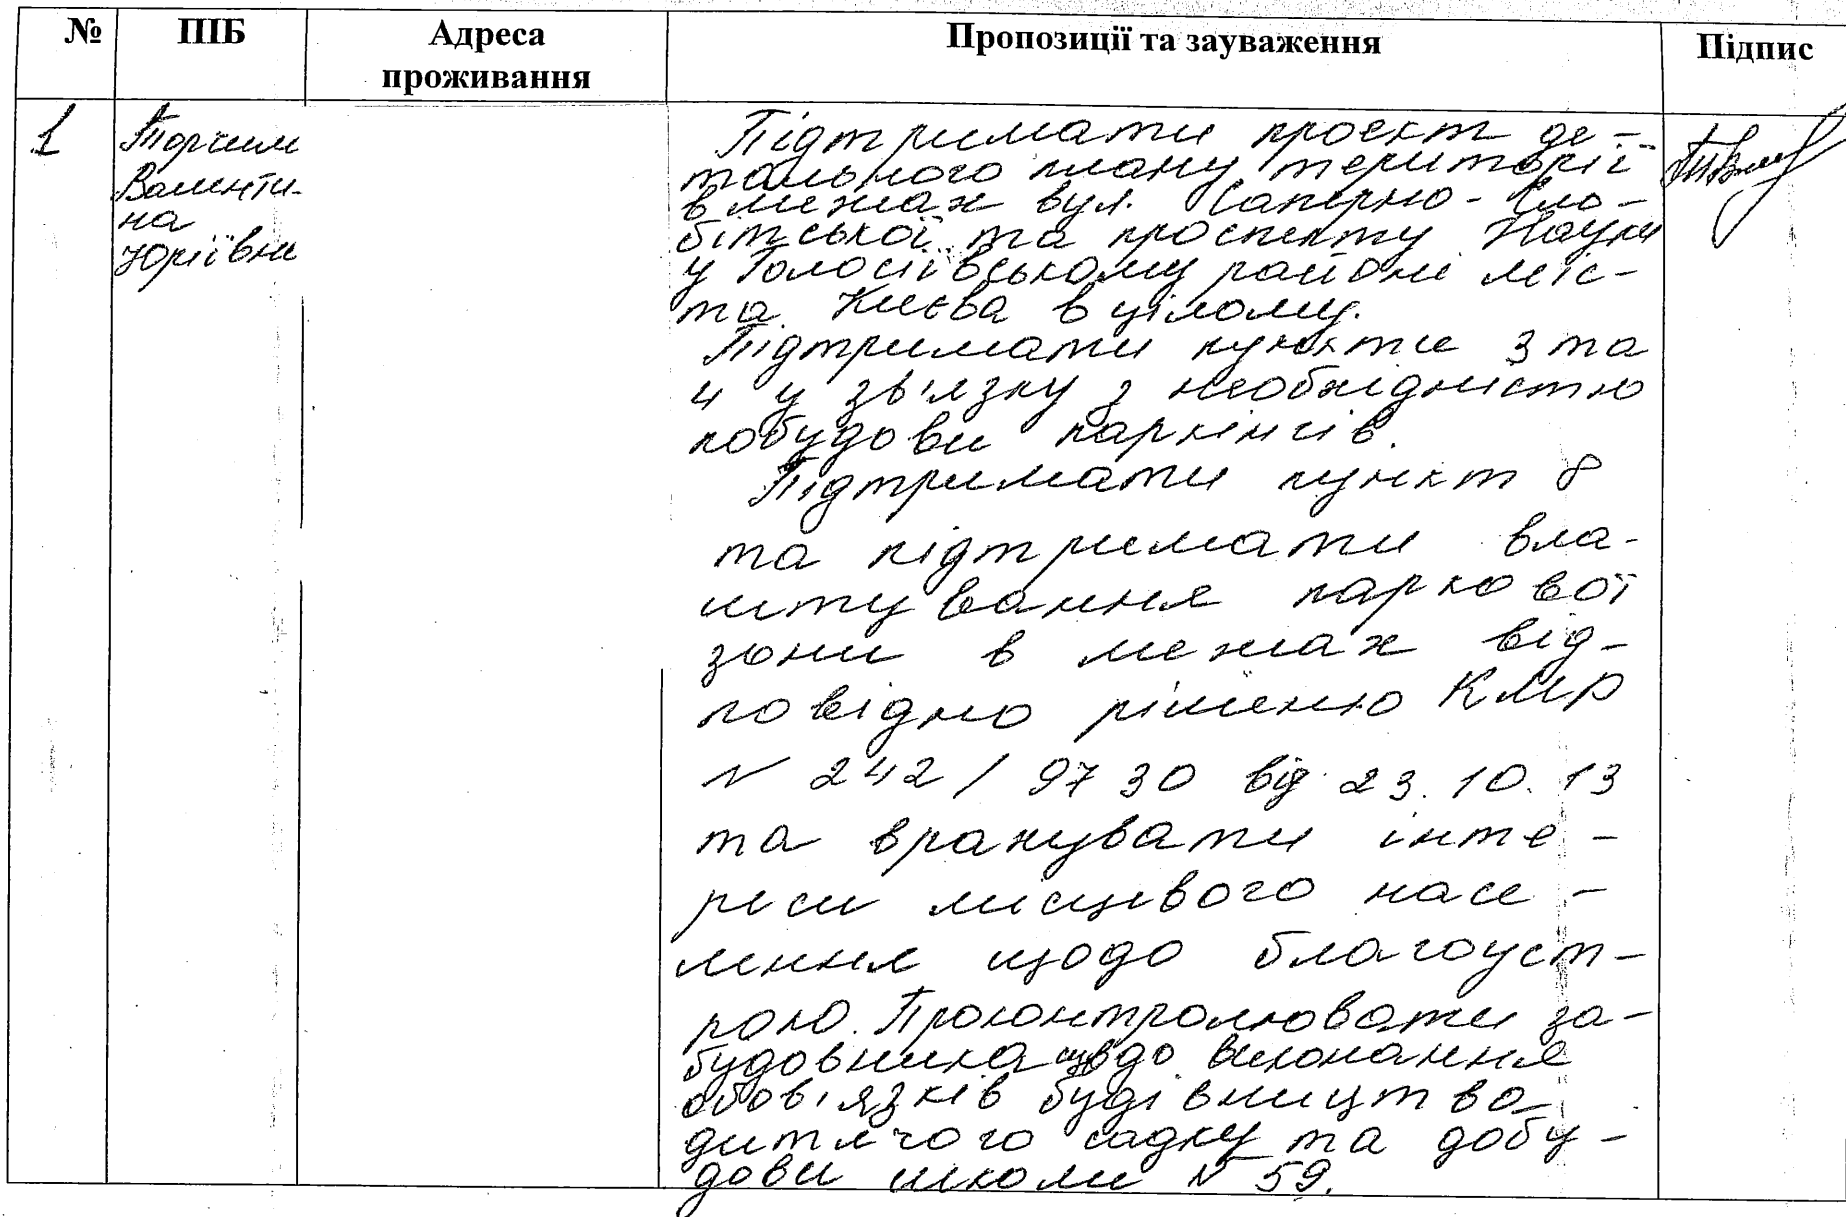 № ПІБ Адреса проживання Пропозиції та зауваження Підпис
1
Торчим
Валенти-
на
Юріївна
Підтримати проект де-
тального плану території
в межах вул. Саперно-Сло-
бітської та проспекту Науки
у Голосіївському районі міс-
та Києва в цілому.
Підтримати пункти 3 та
4 у зв'язку з необхідністю
побудови паркінгів.
Підтримати пункт 8
та підтримати вла-
штування паркової
зони в межах від-
повідно рішенню КМР
№ 242 / 9730 від 23.10.13
та врахувати інте-
реси місцевого насе-
лення щодо благоуст-
рою. Проконтролювати за-
будовника щодо виконання
обов'язків будівництва
дитячого садку та добу-
дови школи № 59.